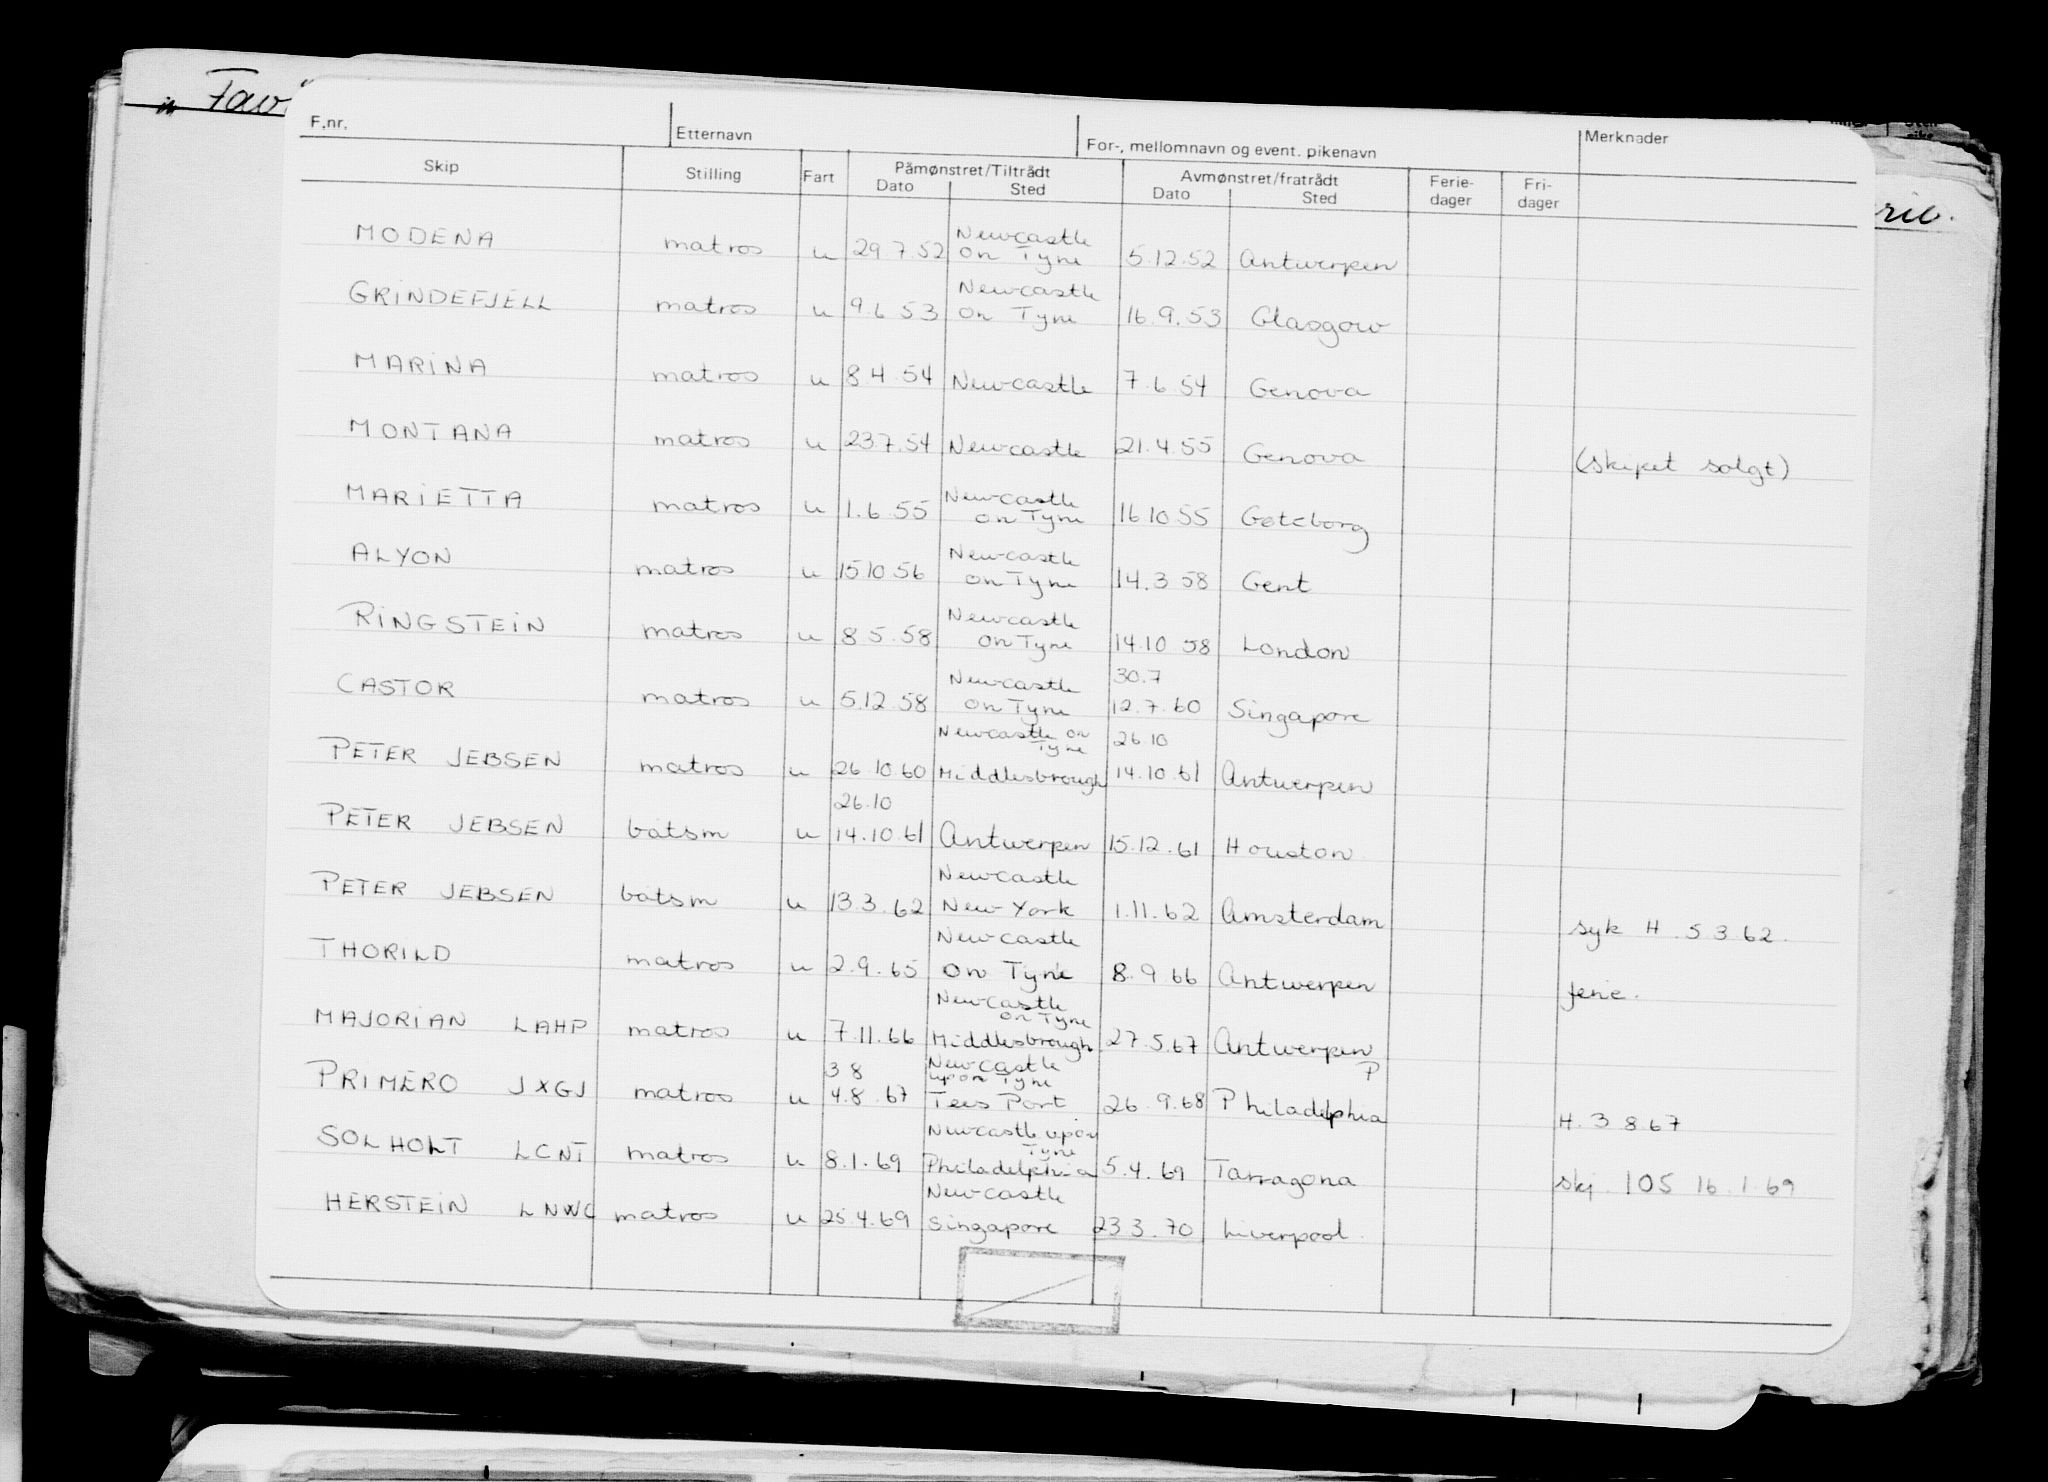 Fav
F.nr. Etternavn For-, mellomnavn og event. pikenavn Merknader
Skip Stilling Fart Påmønstret/Tiltrådt Avmønstret/fratrådt Ferie- Fri-
Dato Sted Dato Sted dager dager
Newcastle
MODENA matros u 29.7.52 on Tyne 5.12.52 Antwerpen
Newcastle
GRINDEFJELL matros u 9.6 53 on Tyne 16.9.53 Glasgow
MARINA matros u 8.4.54 Newcastle 7.6.54 Genova
MONTANA matros u 23.7.54 Newcastle 21.4.55 Genova (skipet solgt)
Newcastle
MARIETTA matros u 1.6.55 on Tyne 16 10 55 Gøteborg
Newcastle
ALYON matros u 15 10 56 on Tyne 14.3 58 Gent
Newcastle
RINGSTEIN matros u 8.5.58 on Tyne 14.10 58 London
Newcastle 30.7
CASTOR matros u 5.12.58 on Tyne 12.7.60 Singapore
Newcastle on Tyne 26.10
PETER JEBSEN matros u 26.10.60 Middlesbrough 14.10.61 Antwerpen
26.10
PETER JEBSEN båtsm u 14.10.61 Antwerpen 15.12.61 Houston
Newcastle
PETER JEBSEN båtsm u 13.3.62 New York 1.11.62 Amsterdam syk H 5 3 62.
Newcastle
THORILD matros u 2.9.65 on Tyne 8.9 66 Antwerpen ferie.
Newcastle on Tyne
MAJORIAN LAHP matros u 7.11.66 Middlesbrough 27.5.67 Antwerpen
3 8 Newcastle upon Tyne P
PRIMERO JXGJ matros u 4.8.67 Tees Port 26.9.68 Philadelphia H. 3 8.67
Newcastle upon Tyne
SOLHOLT LCNT matros u 8.1.69 Philadelphia 5.4.69 Tarragona skj. 105 16.1.69
Newcastle
HERSTEIN LNWC matros u 25.4.69 Singapore 23 3.70 Liverpool